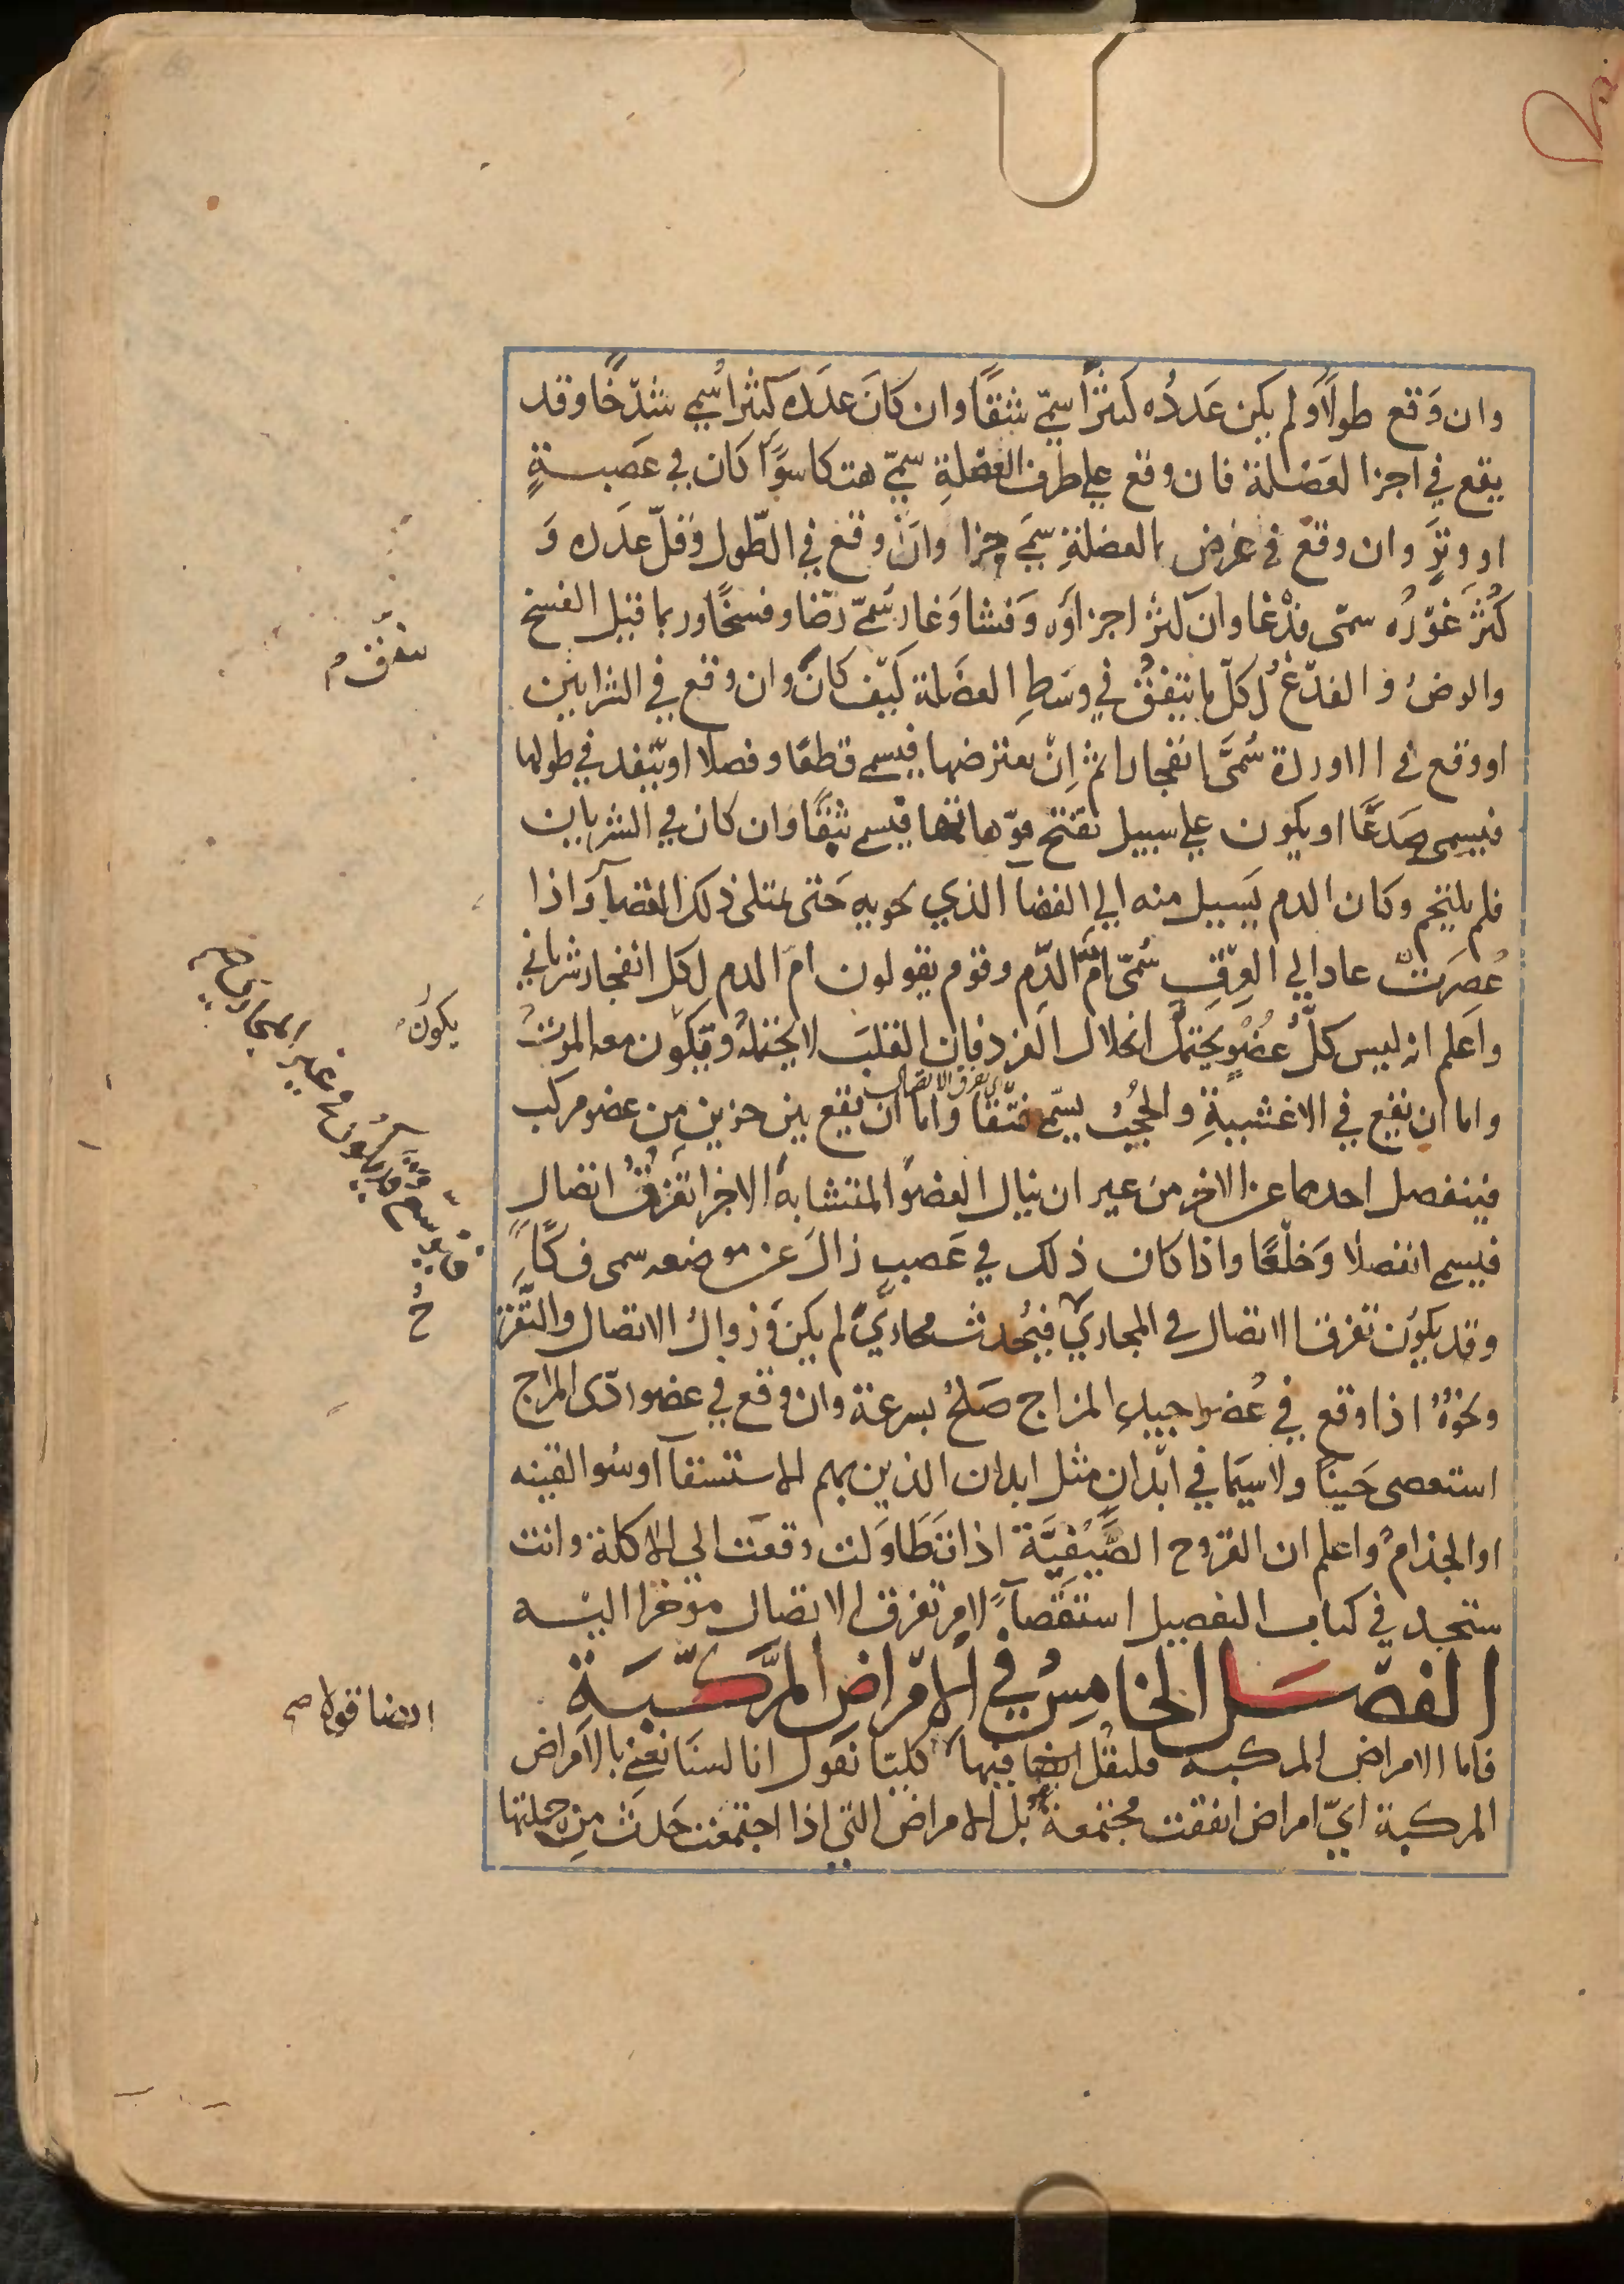 وان وَقع طولاً وَلم يكن عَددُه كثيرًا سمّي شقًا وان كانَ عدَده كثيرا سُمي شدّخًا وقد
يقع في اجزا العَضلة فان وقع علي طرف العضلةِ سمّي هتكا سوًا كان في عَصبةٍ
او وترٍ وان وقع في عرض العضلةِ سمَي جزا وان وقع في الطّول وقلّ عدَده وَ
كثرَ غوّرُه سمّى فدْغا وان كثرَ اجزاوَه وَفشا وَغار سمّي رضّا وفسخًا وربما قيل الفسخ
والرضُ و الفدّغُ لكلّ ما يتفق في وسَطِ العضَلة كيّف كانَ وان وقع في الشرايين
او وقع في الاوردة سُمّيَ انفجارا ثم اِنْ يعترضها فيسمي قطعًا وفصلا او ينفد في طولها
فيسمى صَدعًا او يكون علي سبيل تفتح فوّهاتها فيسمي بثقًا وان كان في الشريان
فلم يلتحم وكان الدم يَسيل منه الي الفضا الذي يحويه حَتى يمتلى ذلك الفضاَ وَاذا
عُصِرَت عاد الي العِرقِ سُمّى امُّ الدّم وقوم يقولون امّ الدم لكل انفجار شرياني
واَعلم انه ليس كلُّ عضُوٍ يَحتمل انحلال الفرد فان القلبَ لا يحتملهُ ويكون معه الموتُ
ى تفرق الاتصال
واما ان يقع في الاغشيةِ والحجُب يسمّي فتقًا واما ان يقع بين جزين من عضو مركب
فينفصل احدهما عن الاخر من غير ان ينال العضوَ المتشابه الاجزا تفرقُ اتصال
فيسمي انفصلا وَخلعًا واذا كان ذلك في عَصبٍ زالَ عن موضعه سمى فكًا
وقد يكوُن تفرق الاتصال في المجاري فيُحدث مجاريَ لم يكن وَزوالُ الاتصال والتقرّ
ونحَوُهُ اذا وقع في عُضو جيدِ المزاج صَلحُ بسرعة وان وقع في عضو ردّى المزاج
استعصى حَينًا ولا سيَما في ابدانٍ مثل ابدان الذين بهم الاستسقآ او سُو القينه
او الجذامُ واعلم ان القرُوح الصَّيفيَّة اذا تطَاوَلت وقعت الي الاكلة وانت
ستجد في كتاب التفصيل استقصآءً لامر تفرق الاتصال موخرا اليه
الفصَل الخامِسُ في الامّراض المرَّكبَة
فاما الامراض المركبة فلنقل ايضا فيها كليّا نقول انا لسنَا نعني بالامراض
المركبة ايّ امراض اتفقت مجتمعة بل الامراض التي اذا اجتمعت حَدَث مِن جملتها
يتفرّق م
يكون
ايضا قولا صح